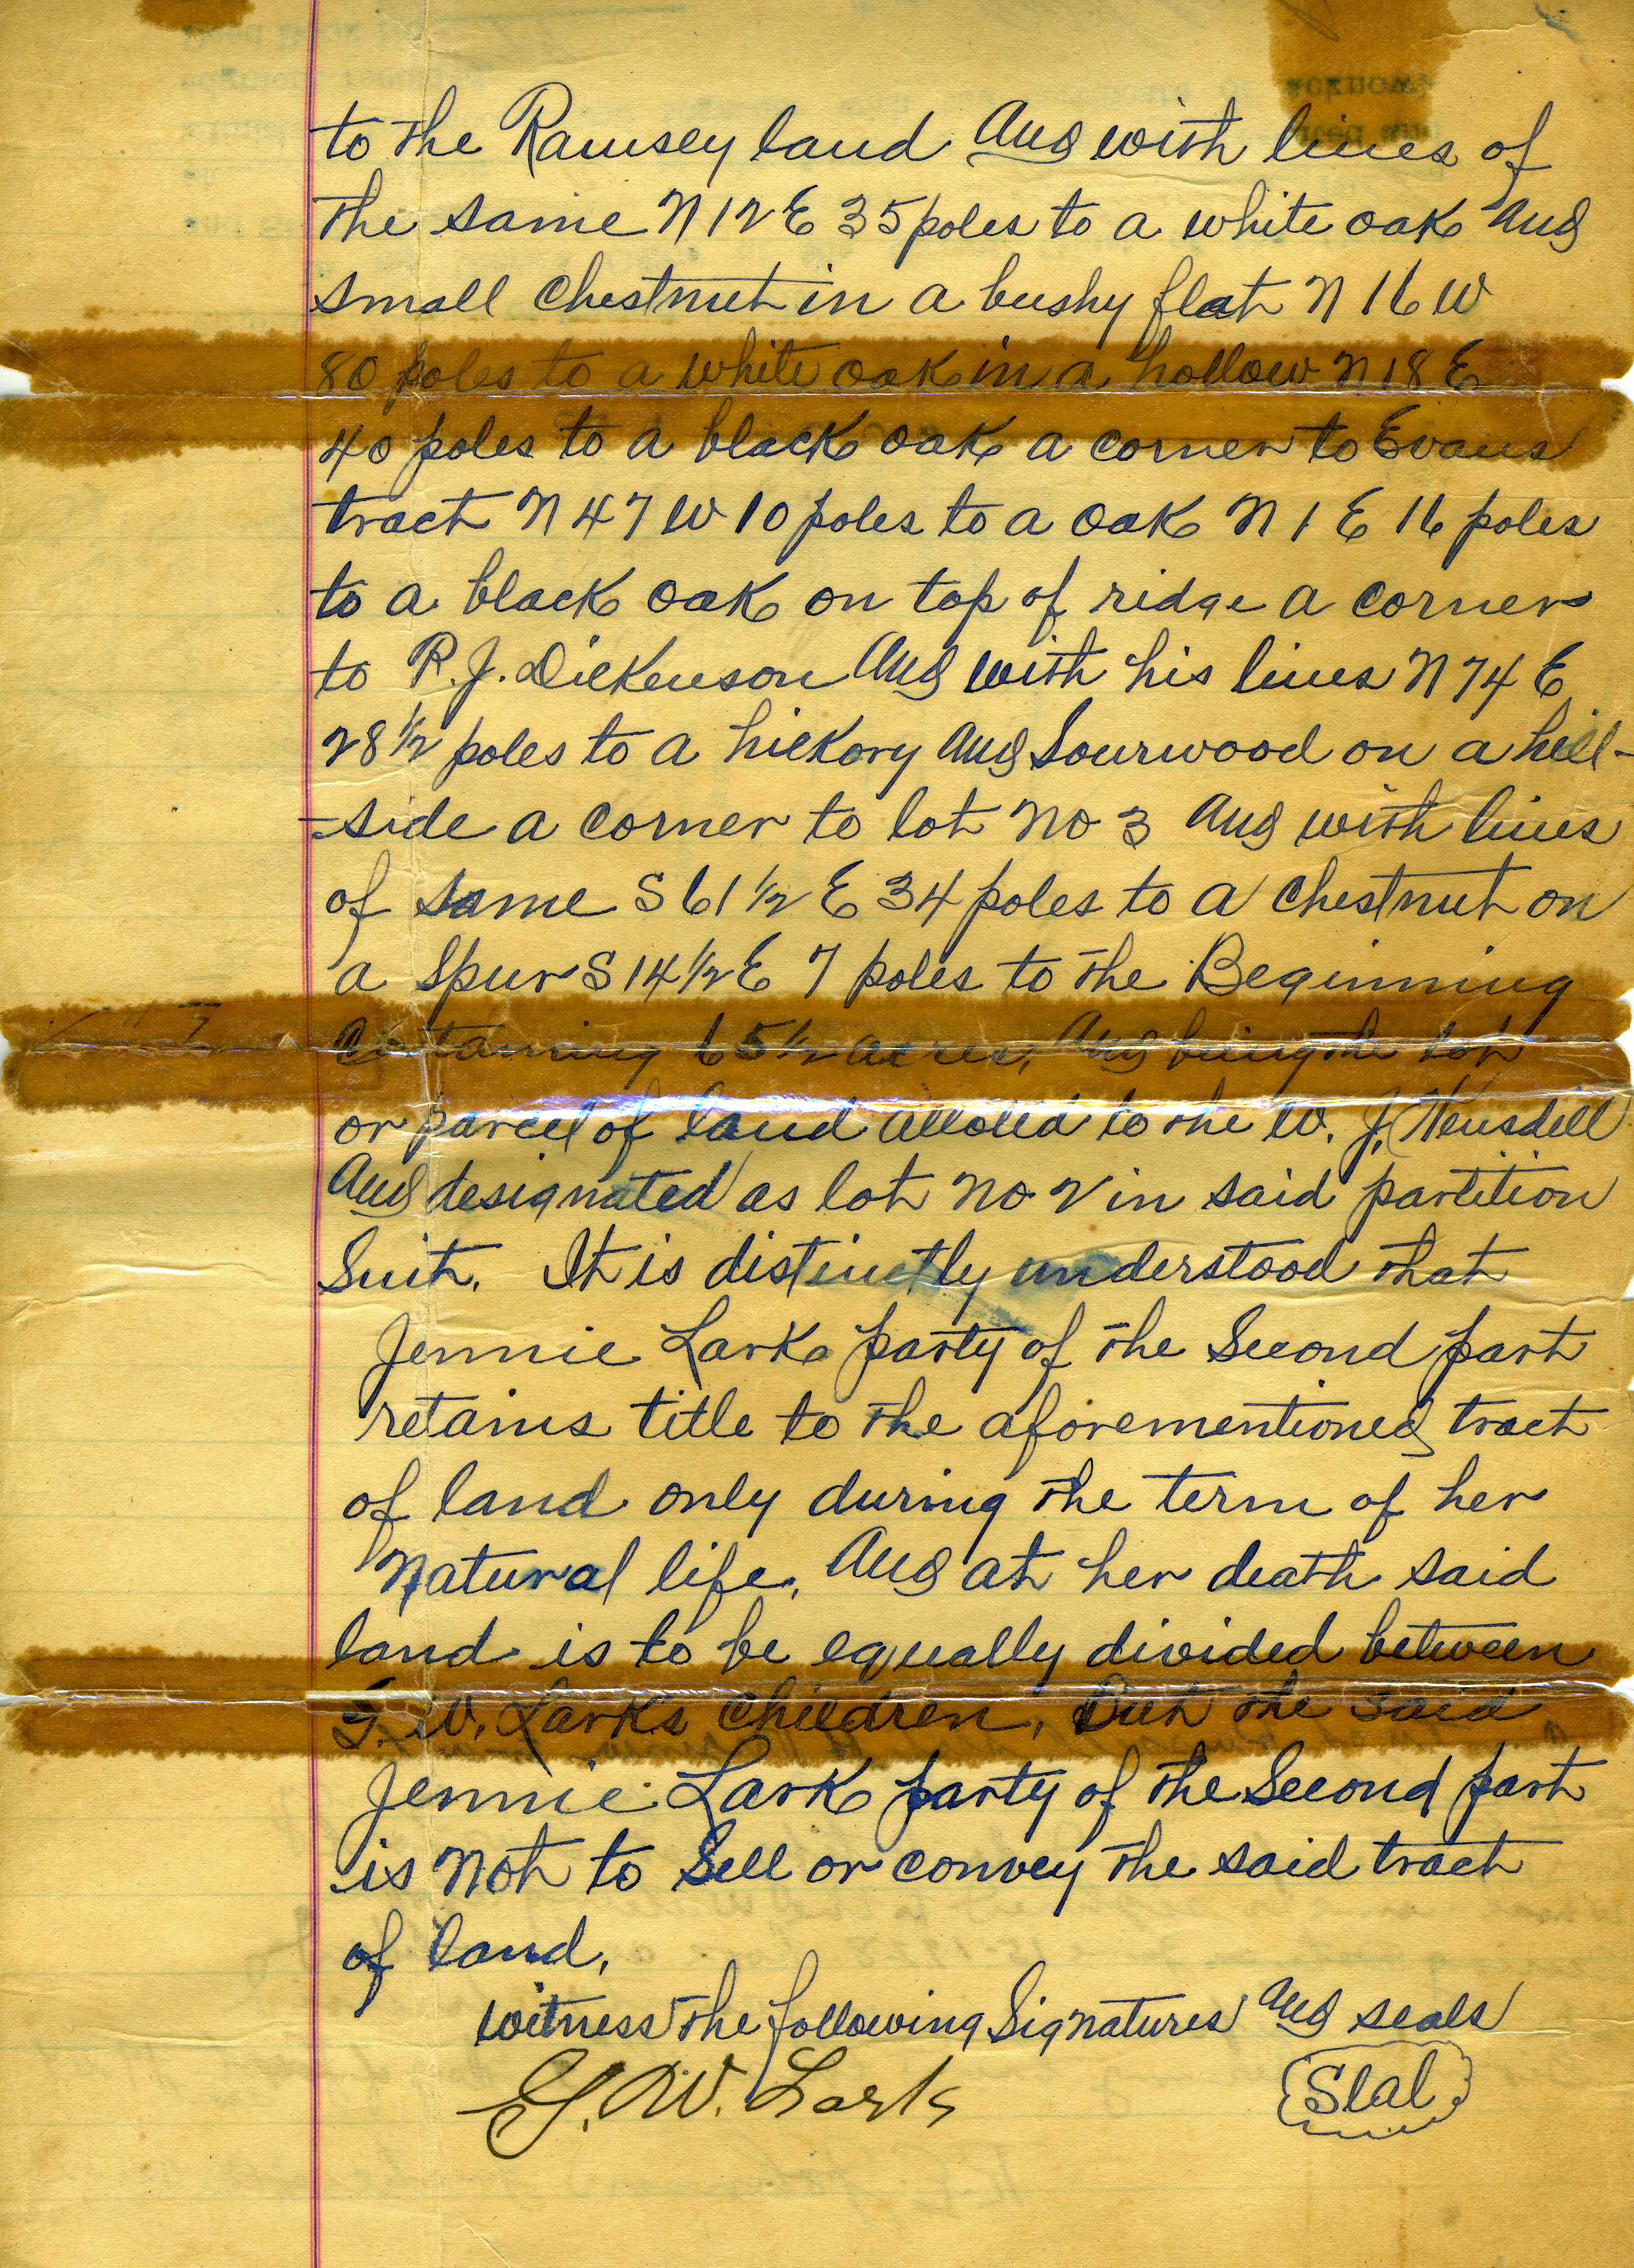 to the Ramsey land and with lines of
the same N 12 E 35 poles to a white oak and
small chestnut in a bushy flat N 16 W
80 poles to a white oak in a hollow N 18 E
40 poles to a black oak a corner to Evans
tract N 47 W 10 poles to a oak N 1 E 16 poles
to a black oak on top of ridge a corner
to R. J. Dickenson and with his lines N 74 E
28 1/2 poles to a hickory and Sourwood on a hill-
-side a corner to lot No 3 and with lines
of same S 61 1/2 E 34 poles to a chestnut on
a Spur S 14 1/2 E 7 poles to the Beginning
Containing 65 1/2 acres, and being the lot
or parcel of land alloted to the W. J. Hensdell
and designated as lot No 2 in said partition
Suit. It is distinctly understood that
Jennie Lark party of the Second part
retains title to the aforementioned tract
of land only during the term of her
Natural life, and at her death said
land is to be equally divided between
G. W. Lark's Children, But the said
Jennie Lark party of the Second part
is Not to Sell or convey the said tract
of land.
witness the following Signatures and seals
G. W. Lark Seal